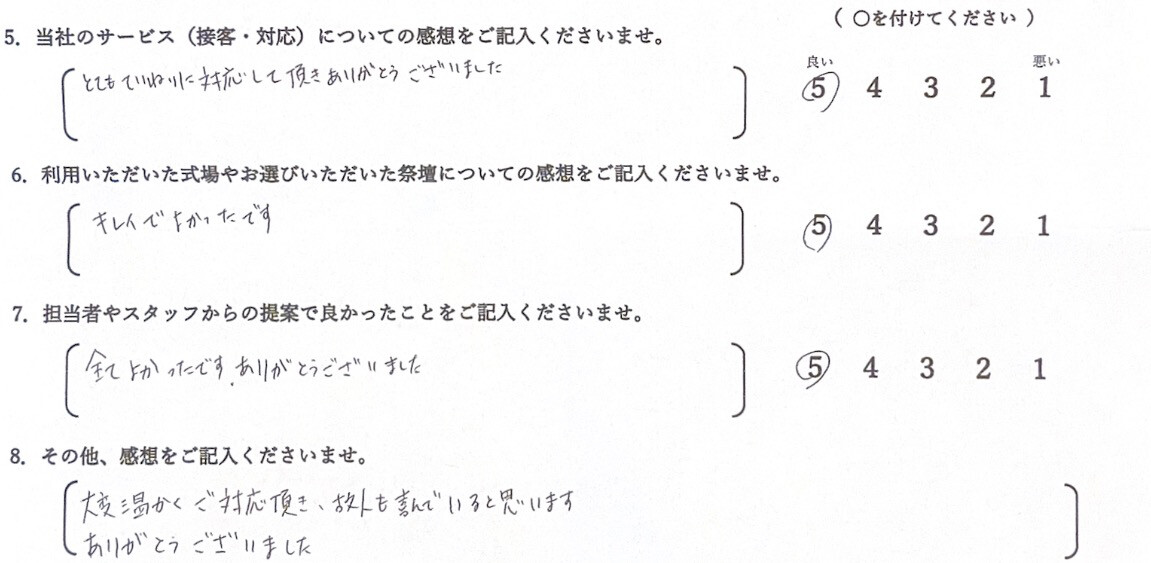 （ ○を付けてください ）
5. 当社のサービス（接客・対応）についての感想をご記入くださいませ。
良い 悪い
とてもていねいに対応して頂きありがとうございました
5 4 3 2 1
6. 利用いただいた式場やお選びいただいた祭壇についての感想をご記入くださいませ。
キレイでよかったです
5 4 3 2 1
7. 担当者やスタッフからの提案で良かったことをご記入くださいませ。
全てよかったです。ありがとうございました
5 4 3 2 1
8. その他、感想をご記入くださいませ。
大変温かくご対応頂き、故人も喜んでいると思います
ありがとうございました